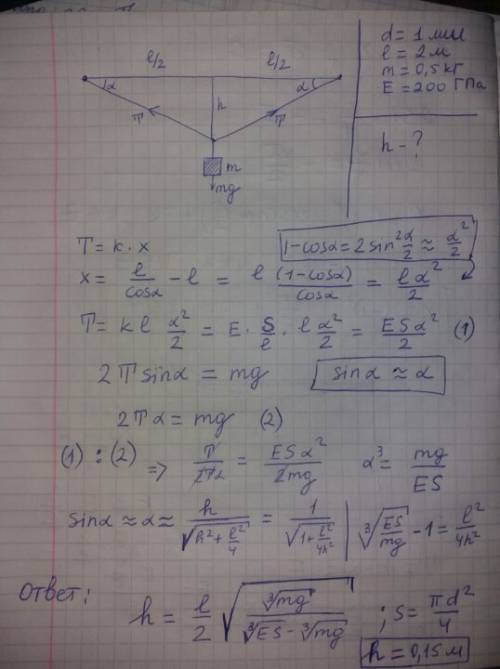 l/2 l/2
α α
h
T T
m
mg
d = 1 мм
l = 2 м
m = 0,5 кг
E = 200 ГПа
h - ?
T = k · x
1 - cosα = 2 sin² α/2 ≈ α²/2
x = l/cosα - l = l (1 - cosα)/cosα = lα²/2
T = kl α²/2 = E · S/l · l α²/2 = ESα²/2 (1)
2T sinα = mg
sinα ≈ α
2Tα = mg (2)
(1) : (2) => T/2Tα = ESα²/2mg α³ = mg/ES
sinα ≈ α ≈ h/√(h² + l²/4) = 1/√(1 + l²/4h²) | ∛(ES/mg) - 1 = l²/4h²
Ответ: h = l/2 √(∛mg/(∛ES - ∛mg)) ; S = πd²/4
h = 0,15 м